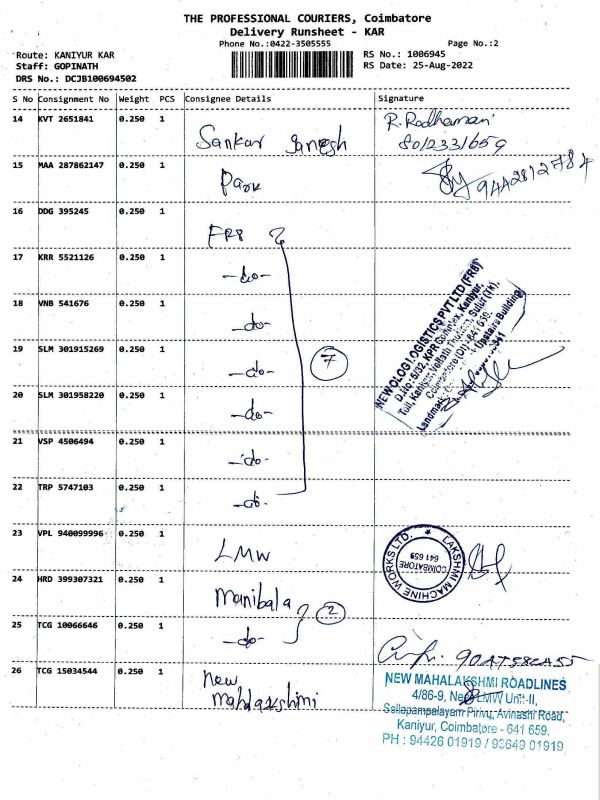 THE PROFESSIONAL COURIERS, Coimbatore
Delivery Runsheet - KAR
Phone No.:0422-3505555
Page No.:2
Route: KANIYUR KAR
RS No.: 1006945
Staff: GOPINATH
RS Date: 25-Aug-2022
DRS No.: DCJB100694502
S No Consignment No Weight PCS Consignee Details Signature
14 KVT 2651841 0.250 1 Sankar Ganesh R. Radhamani
8012331659
15 MAA 287862147 0.250 1 Park 9442812784
16 DDG 395245 0.250 1 FR8
17 KRR 5521126 0.250 1 -do-
18 VNB 541676 0.250 1 -do-
19 SLM 301915269 0.250 1 -do- 7
20 SLM 301958220 0.250 1 -do-
21 VSP 4506494 0.250 1 -do-
22 TRP 5747103 0.250 1 -do-
NEWOLOGI LOGISTICS PVT LTD (FR8)
D.No: 5/32, KPR Complex, Kaniyur,
Toll, Kaniyur Sulur (TK),
Coimbatore (Dt)- 641 659.
Landmark: Upstairs Building
23 VPL 940099996 0.250 1 LMW
LAKSHMI MACHINE WORKS LTD.
COIMBATORE
641 659
24 HRD 399307321 0.250 1 Manibala
25 TCG 10066646 0.250 1 -do- 2
26 TCG 15034544 0.250 1 New
Mahalakshmi
NEW MAHALAKSHMI ROADLINES
4/86-9, Near LMW Unit-II,
Sellapampalayam Pirivu, Avinashi Road,
Kaniyur, Coimbatore - 641 659.
PH : 94426 01919 / 93649 01919